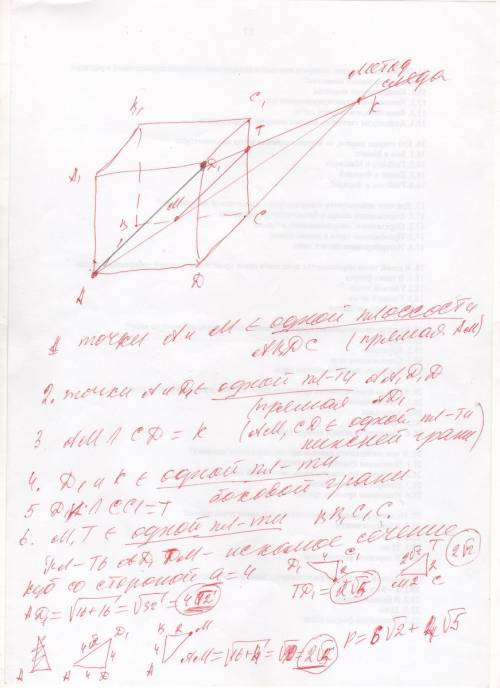 метод
следа
B₁
C₁
K
T
A₁
D₁
M
B
C
A
D
1 точки A и M ∈ одной плоскости
ABDC (прямая AM)
2. точки A и D₁ ∈ одной пл-ти AA₁D₁D
(прямая AD₁
3. AM ∩ CD = K (AM, CD ∈ одной пл-ти
нижней грани)
4. D₁ и K ∈ одной пл-ти
боковой грани
5 DK ∩ CC1 = T
6. M, T ∈ одной пл-ти BB₁C₁C.
пл-ть AD₁TM - искомое сечение
куб со стороной a = 4
AD₁ = √16+16 = √32 = 4√2
D₁ 4 C₁ 2 T
TD₁ = 2√5
2√2 T 2 M 2 C
2√2
A 4√2 D₁ 4 4 D
B 2 M 4 A
AM = √16+4 = √20 = 2√5
P = 6√2 + 4√5